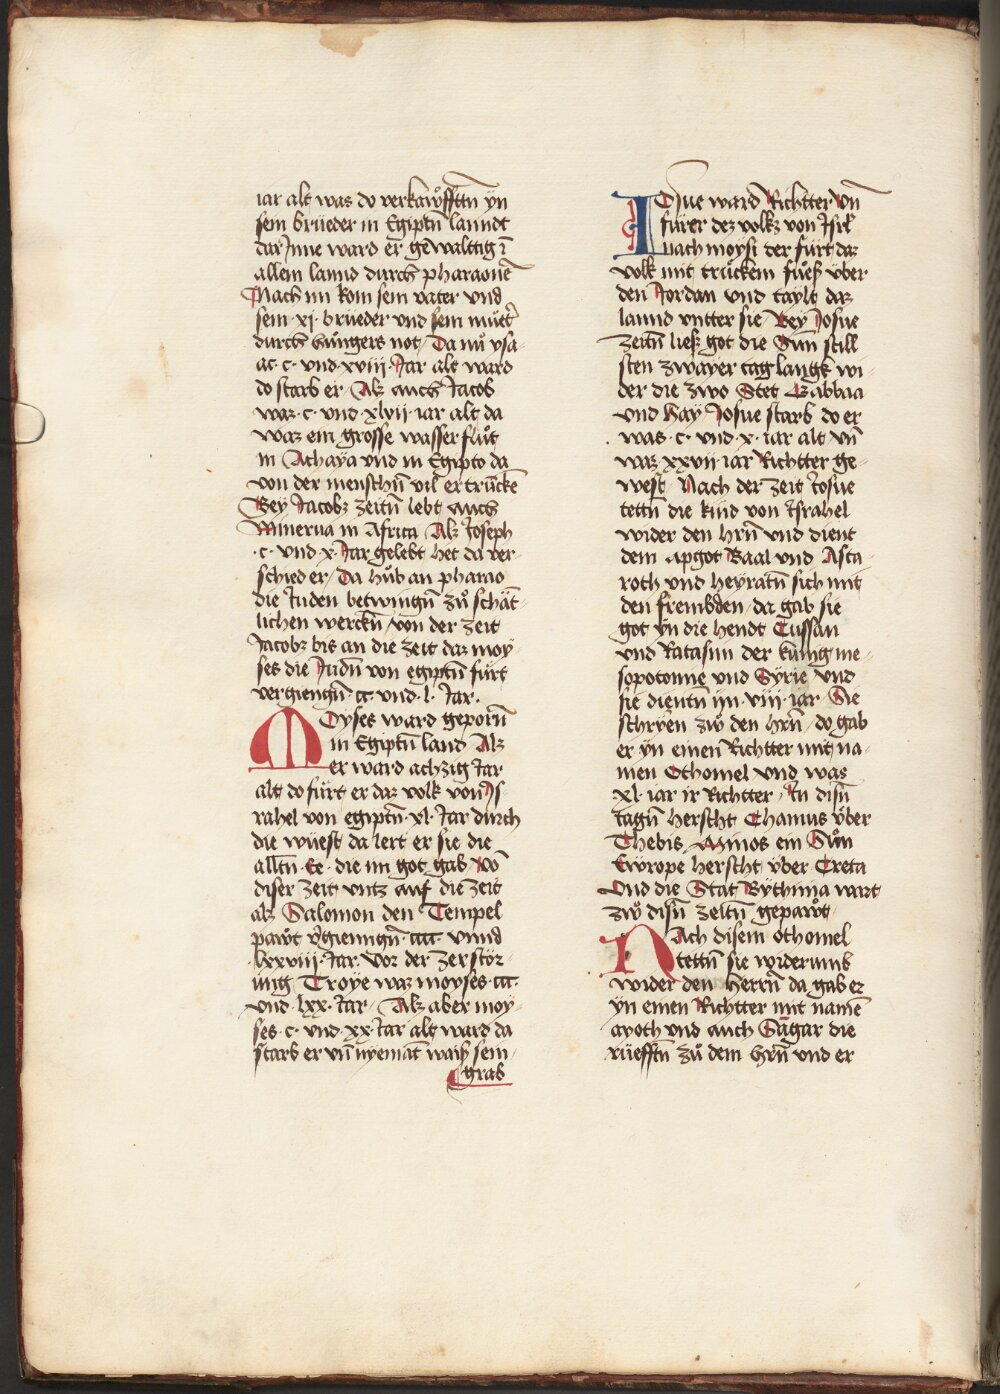 iar alt was do verkawͦfftn̄ yn
sein brueder in Egiptn̄ lanndt
dar Inne ward er gewalttig ī
allem lannd durch pharaonē
Nach im kom sein vater vnd
sein ·xj· brueder vnd sein mueͤt̓
durch hungers not / Da nuͦ ysa
ac ·c· vnd xviii Jar alt ward
do starb er / Alz auch Jacob
waz ·c· vnd xlvii iar alt da
waz ein grosse wasser fluͦt
in Achaya vnd in Egipto da
von der menschn̄ vil er trūcke
Bey Jacobz zeitn̄ lebt auch
Minerua in Africa / Alz Joseph
·c· vnd x Jar gelebt het da ver-
schied er / Da huͦb an pharao
die Juden betwingn̄ zuͦ schāt-
lichen werckn̄ von der zeit
Jacobz bis an die zeit daz moy-
ses die Judn̄ von egiptn̄ fuͤrt
vergiengn̄ cc vnd ·l· Jar ·
Moyses ward geporn̄
in Egiptn̄ land Alz
er ward achzig Jar
alt do fuͤrt er daz volk von Js-
rahel von egiptn̄ xl Jar durch
die wuest da lert er sie die
alltn̄ Ee · die im got gab Vō
diser zeit vntz auf die zeit
alz Salomon den Tempel
pawͦt v̓giennign̄ cccc vnnd
lxxviii Jar Vor der zerstoͤr-
ung Troye waz moyses ccc
vnd lxx Jar / Alz aber moy-
ses ·c· vnd xx Jar alt ward da
starb er vn̄ nyemāt waiß sein
grab
Iosue ward Richtter Vn̄
fuͤrer dez volkz von Jsrl̄
nach moysi der fuͤrt daz
volk mit truͤckem fuͤeß vͤber
den Jordan vnd taylt daz
lannd vntter sie / Bey Josue
zeitn̄ ließ got die Sun̄ still
sten zwayer tag langk wi-
der die zwo Stet Gabbaa
vnd hay Josue starb do er
was ·c· vnd ·x· iar alt vn̄
waz xxvii iar Richtter ge-
west Nach der zeit Josue
tettn̄ die kind von Jsrahel
wider den hrn̄ vnd dient
dem apgot Baal vnd Asta-
roth vnd heyratn̄ sich mit
den frembden / da gab sie
got yn die hendt Cussan
vnd Ratasim der kunig me-
sopotomie vnd Syrie vnd
sie dientn̄ yn viii iar Sie
schryen zw den hrn̄ / do gab
er yn einen Richtter mit na-
men Othoniel vnd was
xl iar ir Richtter / In disn̄
tagn̄ herscht Chamus vͤber
Thebis Minos ein Suͦn
Ewrope herscht vͤber Creta
Vnd die Stat Bythinia wart
zw disn̄ zeitn̄ gepawͦt
Nach disem othoniel
tettn̄ sie widerumb
wider den herrn̄ da gab er
yn einen Richtter mit namē
ayoth vnd auch Sāgar die
ruefftn̄ zuͦ dem hrn̄ vnd er